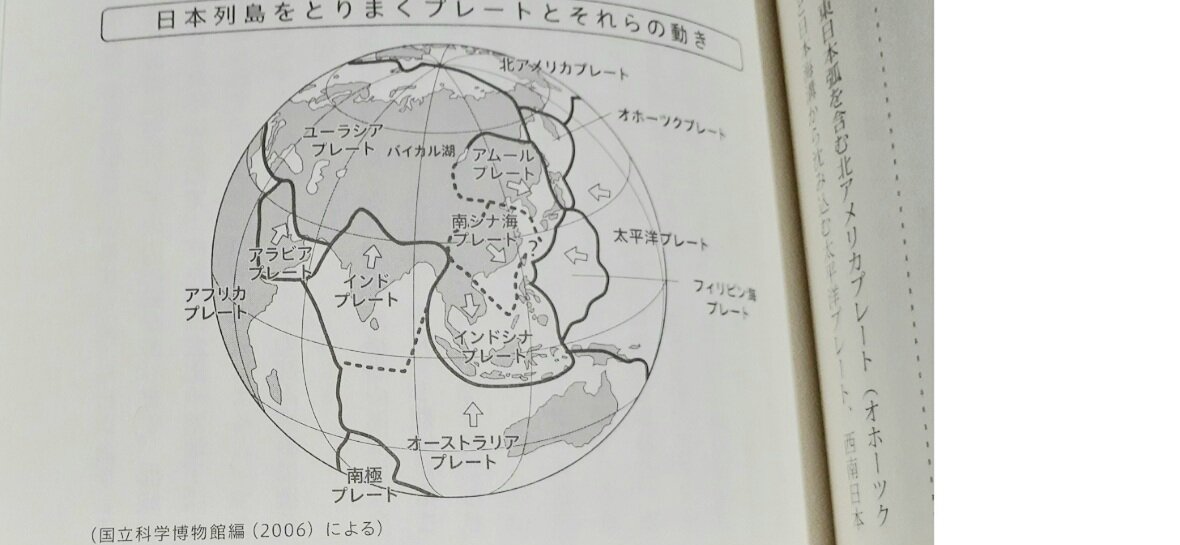 日本列島をとりまくプレートとそれらの動き
北アメリカプレート
オホーツクプレート
ユーラシア
プレート
バイカル湖
アムール
プレート
南シナ海
プレート
?
太平洋プレート
アラビア
プレート
インド
プレート
アフリカ
プレート
フィリピン海
プレート
インドシナ
プレート
オーストラリア
プレート
南極
プレート
(国立科学博物館編(2006)による)
東日本弧を含む北アメリカプレート(オホーツク
日本海溝から沈み込む太平洋プレート、西南日本